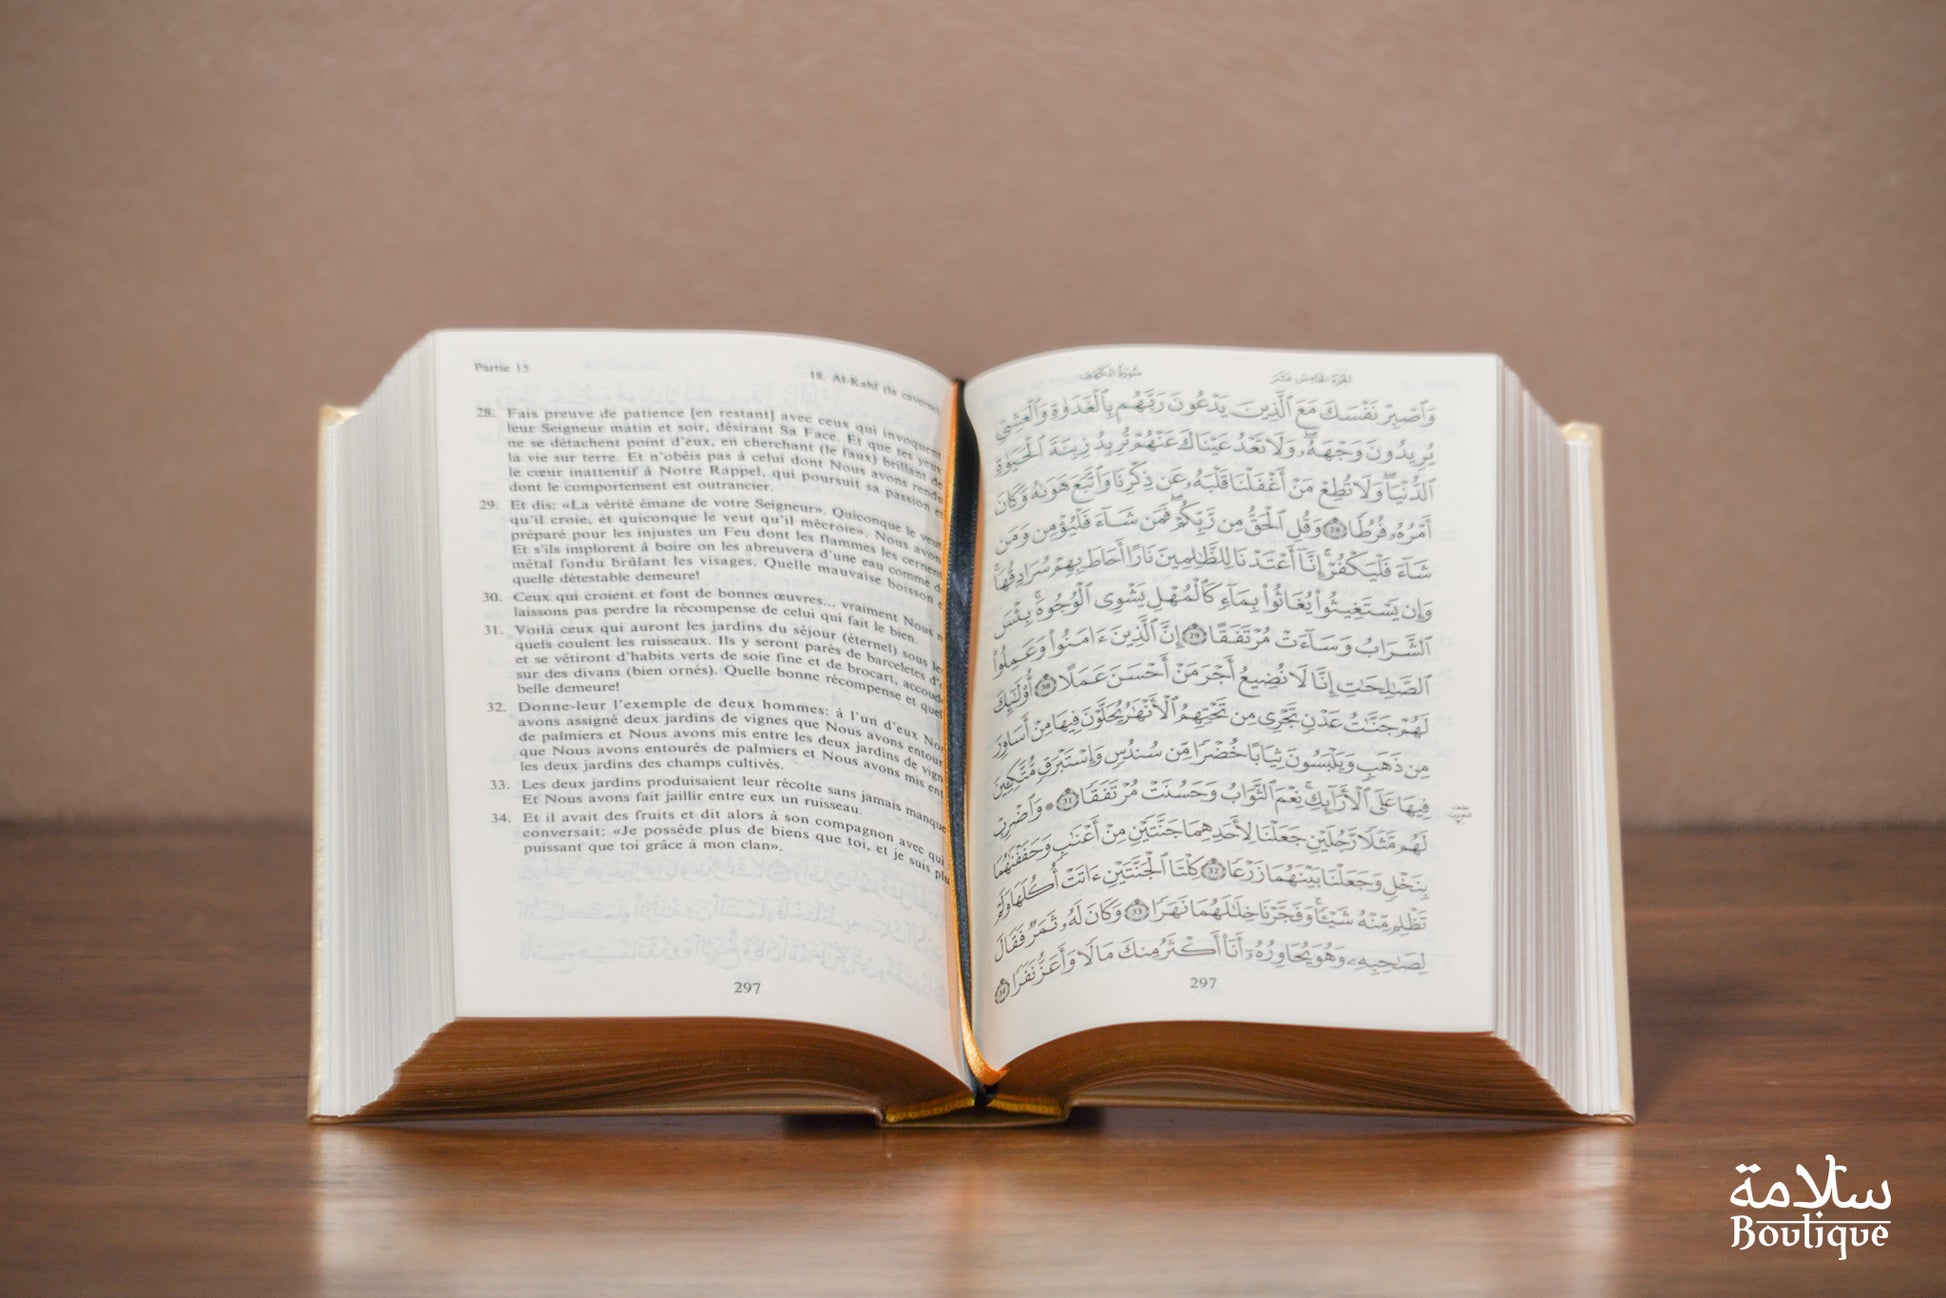 Partie 15
18. Al-Kahf (la caverne)
28. Fais preuve de patience [en restant] avec ceux qui invoquent
leur Seigneur matin et soir, désirant Sa Face. Et que tes yeux
ne se détachent point d'eux, en cherchant (le faux) brillant de
la vie sur terre. Et n'obéis pas à celui dont Nous avons rendu
le cœur inattentif à Notre Rappel, qui poursuit sa passion et
dont le comportement est outrancier.
29. Et dis: «La vérité émane de votre Seigneur». Quiconque le veut
qu'il croie, et quiconque le veut qu'il mécroie». Nous avons
préparé pour les injustes un Feu dont les flammes les cernent
Et s'ils implorent à boire on les abreuvera d'une eau comme d
métal fondu brûlant les visages. Quelle mauvaise boisson e
quelle détestable demeure!
30. Ceux qui croient et font de bonnes œuvres... vraiment Nous n
laissons pas perdre la récompense de celui qui fait le bien.
31. Voilà ceux qui auront les jardins du séjour (éternel) sous les
quels coulent les ruisseaux. Ils y seront parés de barcelets d'o
et se vêtiront d'habits verts de soie fine et de brocart, accoud
sur des divans (bien ornés). Quelle bonne récompense et quel
belle demeure!
32. Donne-leur l'exemple de deux hommes: à l'un d'eux Nou
avons assigné deux jardins de vignes que Nous avons entour
de palmiers et Nous avons mis entre les deux jardins de vign
que Nous avons entourés de palmiers et Nous avons mis ent
les deux jardins des champs cultivés.
33. Les deux jardins produisaient leur récolte sans jamais manque
Et Nous avons fait jaillir entre eux un ruisseau.
34. Et il avait des fruits et dit alors à son compagnon avec qui
conversait: «Je possède plus de biens que toi, et je suis plu
puissant que toi grâce à mon clan».
297
سُورَةُ الكَهْفِ
الجُزْءُ الخَامِسَ عَشَرَ
وَٱصْبِرْ نَفْسَكَ مَعَ ٱلَّذِينَ يَدْعُونَ رَبَّهُم بِٱلْغَدَوٰةِ وَٱلْعَشِىِّ
يُرِيدُونَ وَجْهَهُۥۖ وَلَا تَعْدُ عَيْنَاكَ عَنْهُمْ تُرِيدُ زِينَةَ ٱلْحَيَوٰةِ
ٱلدُّنْيَاۖ وَلَا تُطِعْ مَنْ أَغْفَلْنَا قَلْبَهُۥ عَن ذِكْرِنَا وَٱتَّبَعَ هَوَىٰهُ وَكَانَ
أَمْرُهُۥ فُرُطًا 28 وَقُلِ ٱلْحَقُّ مِن رَّبِّكُمْۖ فَمَن شَآءَ فَلْيُؤْمِن وَمَن
شَآءَ فَلْيَكْفُرْۚ إِنَّآ أَعْتَدْنَا لِلظَّٰلِمِينَ نَارًا أَحَاطَ بِهِمْ سُرَادِقُهَاۚ
وَإِن يَسْتَغِيثُوا۟ يُغَاثُوا۟ بِمَآءٍ كَٱلْمُهْلِ يَشْوِى ٱلْوُجُوهَۚ بِئْسَ
ٱلشَّرَابُ وَسَآءَتْ مُرْتَفَقًا 29 إِنَّ ٱلَّذِينَ ءَامَنُوا۟ وَعَمِلُوا۟
ٱلصَّٰلِحَٰتِ إِنَّا لَا نُضِيعُ أَجْرَ مَنْ أَحْسَنَ عَمَلًا 30 أُو۟لَٰٓئِكَ
لَهُمْ جَنَّٰتُ عَدْنٍ تَجْرِى مِن تَحْتِهِمُ ٱلْأَنْهَٰرُ يُحَلَّوْنَ فِيهَا مِنْ أَسَاوِرَ
مِن ذَهَبٍ وَيَلْبَسُونَ ثِيَابًا خُضْرًا مِّن سُندُسٍ وَإِسْتَبْرَقٍ مُّتَّكِـِٔينَ
فِيهَا عَلَى ٱلْأَرَآئِكِۚ نِعْمَ ٱلثَّوَابُ وَحَسُنَتْ مُرْتَفَقًا 31 ۞ وَٱضْرِبْ
لَهُم مَّثَلًا رَّجُلَيْنِ جَعَلْنَا لِأَحَدِهِمَا جَنَّتَيْنِ مِنْ أَعْنَٰبٍ وَحَفَفْنَٰهُمَا
بِنَخْلٍ وَجَعَلْنَا بَيْنَهُمَا زَرْعًا 32 كِلْتَا ٱلْجَنَّتَيْنِ ءَاتَتْ أُكُلَهَا وَلَمْ
تَظْلِم مِّنْهُ شَيْـًٔاۚ وَفَجَّرْنَا خِلَٰلَهُمَا نَهَرًا 33 وَكَانَ لَهُۥ ثَمَرٌ فَقَالَ
لِصَٰحِبِهِۦ وَهُوَ يُحَاوِرُهُۥٓ أَنَا۠ أَكْثَرُ مِنكَ مَالًا وَأَعَزُّ نَفَرًا 34
297
سلامة
Boutique